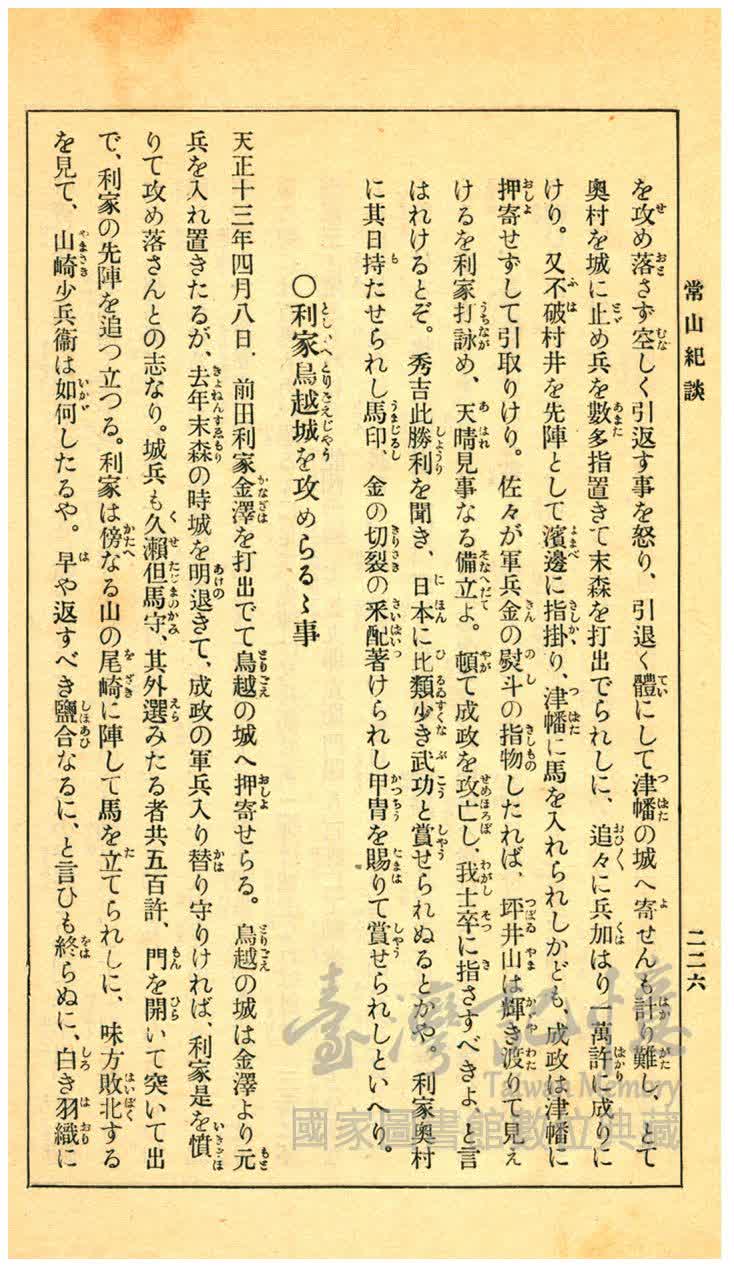 常山紀談
二二六
を攻め落さず空しく引返す事を怒り、引退く體にして津幡の城へ寄せんも計り難し、とて
奥村を城に止め兵を數多指置きて末森を打出でられしに、追々に兵加はり一萬許に成りに
けり。又不破村井を先陣として濱邊に指掛り、津幡に馬を入れられしかども、成政は津幡に
押寄せずして引取りけり。佐々が軍兵金の熨斗の指物したれば、坪井山は輝き渡りて見え
けるを利家打詠め、天晴見事なる備立よ。頓て成政を攻亡し、我士卒に指さすべきよ、と言
はれけるとぞ。秀吉此勝利を聞き、日本に比類少き武功と賞せられぬるとかや。利家奥村
に其日持たせられし馬印、金の切裂の釆配著けられし甲冑を賜りて賞せられしといへり。
〇利家鳥越城を攻めらるゝ事
天正十三年四月八日、前田利家金澤を打出でて鳥越の城へ押寄せらる。鳥越の城は金澤より元
兵を入れ置きたるが、去年末森の時城を明退きて、成政の軍兵入り替り守りければ、利家是を憤
りて攻め落さんとの志なり。城兵も久瀬但馬守、其外選みたる者共五百許、門を開いて突いて出
で、利家の先陣を追つ立つる。利家は傍なる山の尾崎に陣して馬を立てられしに、味方敗北する
を見て、山崎少兵衞は如何したるや。早や返すべき鹽合なるに、と言ひも終らぬに、白き羽織に
臺灣記憶
Taiwan Memory
國家圖書館數位典藏